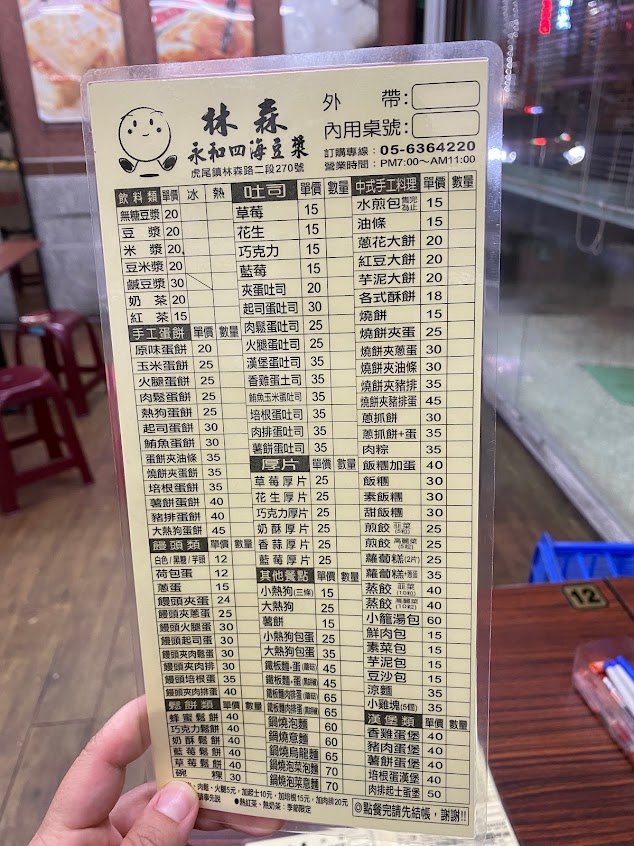 林森
永和四海豆漿
虎尾鎮林森路二段270號
外帶:
內用桌號:
訂購專線:05-6364220
營業時間:PM7:00～AM11:00
飲料類 單價 冰 熱
無糖豆漿 20
豆漿 20
米漿 20
豆米漿 20
鹹豆漿 30
奶茶 20
紅茶 15
手工蛋餅 單價 數量
原味蛋餅 20
玉米蛋餅 25
火腿蛋餅 25
肉鬆蛋餅 25
熱狗蛋餅 25
起司蛋餅 30
鮪魚蛋餅 30
蛋餅夾油條 35
燒餅夾蛋餅 35
培根蛋餅 35
薯餅蛋餅 40
豬排蛋餅 40
大熱狗蛋餅 45
饅頭類 單價 數量
白色/黑糖/芋頭 12
荷包蛋 12
蔥蛋 15
饅頭夾蛋 24
饅頭夾蔥蛋 25
饅頭火腿蛋 30
饅頭起司蛋 30
饅頭夾肉鬆蛋 30
饅頭夾肉排 30
饅頭培根蛋 35
饅頭夾肉排蛋 40
鬆餅類 單價 數量
蜂蜜鬆餅 40
巧克力鬆餅 40
奶酥鬆餅 40
藍莓鬆餅 40
草莓鬆餅 40
碗粿 30
吐司 單價 數量
草莓 15
花生 15
巧克力 15
藍莓 15
夾蛋吐司 20
起司蛋吐司 30
肉鬆蛋吐司 25
火腿蛋吐司 25
漢堡蛋吐司 35
香雞蛋土司 35
鮪魚玉米蛋吐司 35
培根蛋吐司 35
肉排蛋吐司 35
薯餅蛋吐司 35
厚片 單價 數量
草莓厚片 25
花生厚片 25
巧克力厚片 25
奶酥厚片 25
香蒜厚片 25
藍莓厚片 25
其他餐點 單價 數量
小熱狗(三條) 15
大熱狗 25
薯餅 15
小熱狗包蛋 25
大熱狗包蛋 35
鐵板麵+蛋(蘑菇) 45
鐵板麵+蛋(黑胡椒) 45
鐵板麵肉排蛋(蘑菇) 65
鐵板麵肉排蛋(黑胡椒) 65
鍋燒泡麵 60
鍋燒意麵 60
鍋燒烏龍麵 65
鍋燒泡菜泡麵 70
鍋燒泡菜意麵 70
中式手工料理 單價 數量
水煎包 售完為止 15
油條 15
蔥花大餅 20
紅豆大餅 20
芋泥大餅 20
各式酥餅 18
燒餅 15
燒餅夾蛋 25
燒餅夾蔥蛋 30
燒餅夾油條 30
燒餅夾豬排 35
燒餅夾豬排蛋 45
蔥抓餅 30
蔥抓餅+蛋 35
肉粽 35
飯糰加蛋 40
飯糰 30
素飯糰 30
甜飯糰 30
煎餃 韭菜(5粒) 25
煎餃 高麗菜(5粒) 25
蘿蔔糕(2片) 25
蘿蔔糕+蔥蛋 35
蒸餃 韭菜(10粒) 40
蒸餃 高麗菜(10粒) 40
小籠湯包 60
鮮肉包 15
素菜包 15
芋泥包 15
豆沙包 15
涼麵 35
小雞塊(5個) 35
漢堡類 單價 數量
香雞蛋堡 40
豬肉蛋堡 40
薯餅蛋堡 40
培根蛋漢堡 40
肉排起士蛋堡 50
、肉鬆、火腿5元，加起士10元，加培根15元，加肉排20元
事先說 ●熱紅茶、熱奶茶：季節限定
◎點餐完請先結帳，謝謝!!
12